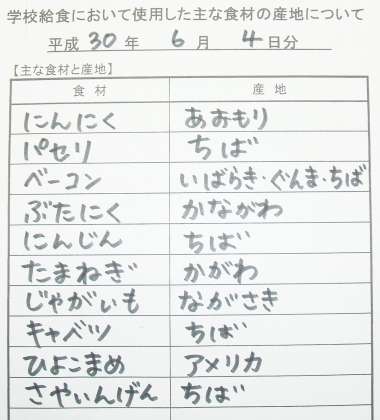 学校給食において使用した主な食材の産地について
平成 30 年 6 月 4 日分
【主な食材と産地】
食 材 産 地
にんにく あおもり
パセリ ちば
ベーコン いばらき・ぐんま・ちば
ぶたにく かながわ
にんじん ちば
たまねぎ かがわ
じゃがいも ながさき
キャベツ ちば
ひよこまめ アメリカ
さやいんげん ちば